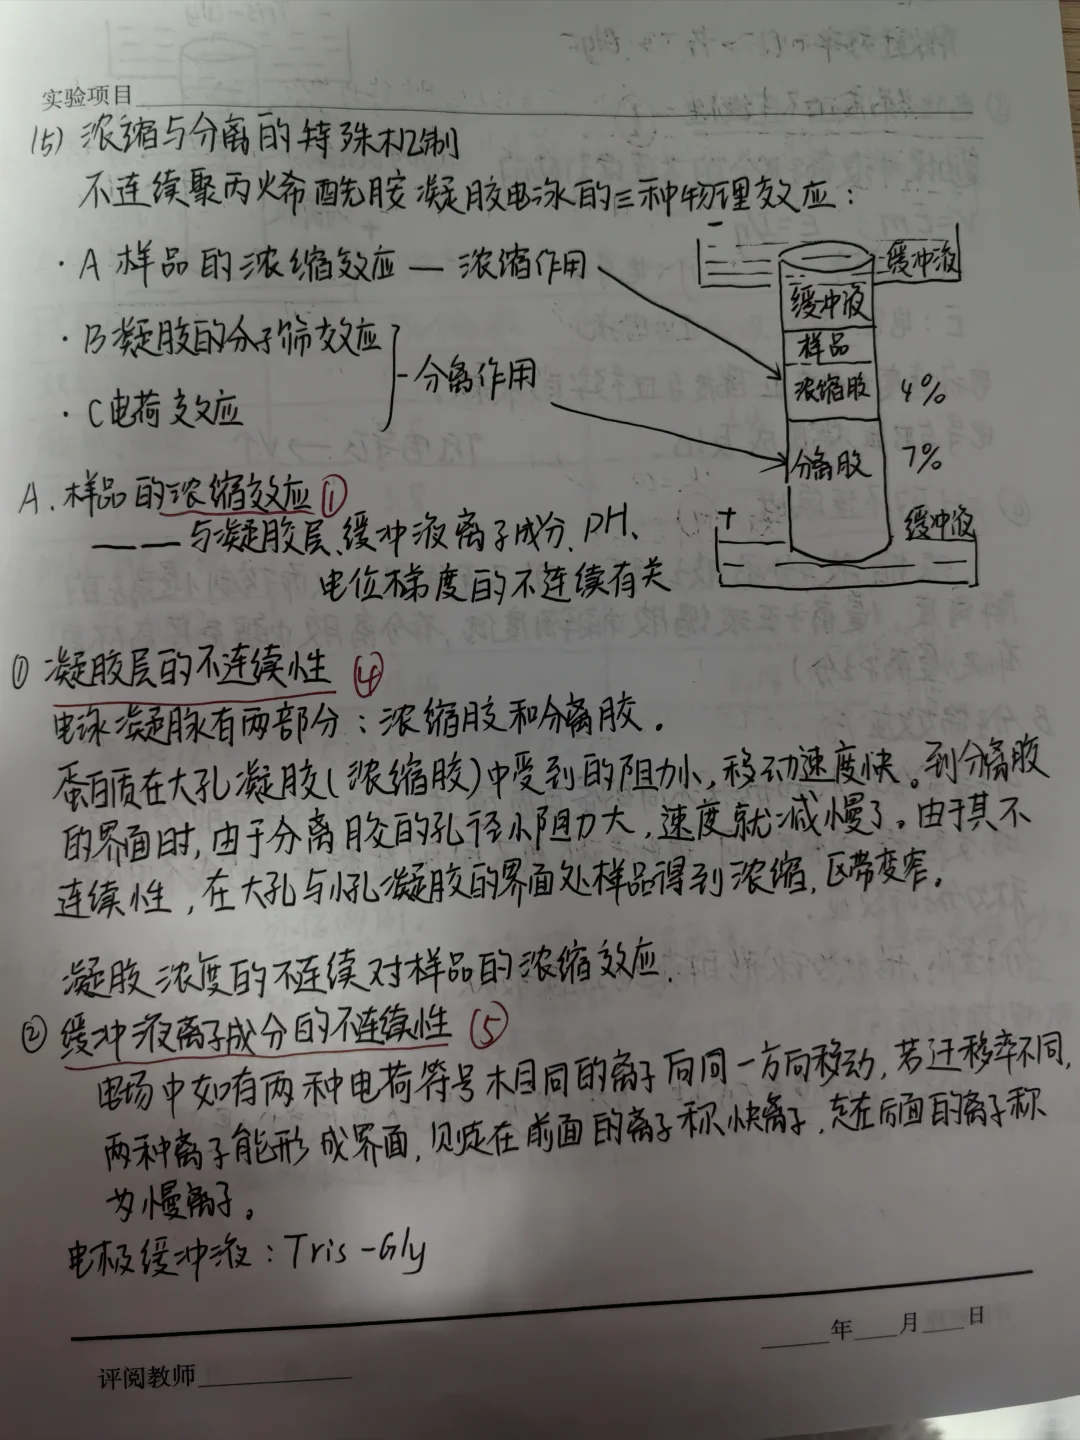 实验项目
(5) 浓缩与分离的特殊机制
不连续聚丙烯酰胺凝胶电泳的三种物理效应:
· A 样品的浓缩效应 — 浓缩作用
· B 凝胶的分子筛效应
分离作用
· C 电荷效应
-
缓冲液
缓冲液
样品
浓缩胶 4%
分离胶 7%
+
缓冲液
A. 样品的浓缩效应 ①
—— 与凝胶层、缓冲液离子成分、PH、
电位梯度的不连续有关
① 凝胶层的不连续性 ④
电泳凝胶有两部分:浓缩胶和分离胶。
蛋白质在大孔凝胶(浓缩胶)中受到的阻力小,移动速度快。到分离胶
的界面时,由于分离胶的孔径小阻力大,速度就减慢了。由于其不
连续性,在大孔与小孔凝胶的界面处样品得到浓缩,区带变窄。
凝胶浓度的不连续对样品的浓缩效应.
② 缓冲液离子成分的不连续性 ⑤
电场中如有两种电荷符号相同的离子向同一方向移动,若迁移率不同,
两种离子能形成界面,则走在前面的离子称快离子,走在后面的离子称
为慢离子。
电极缓冲液:Tris-Gly
年 月 日
评阅教师